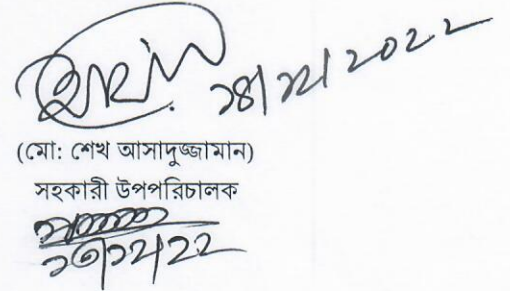 ১৪/১২/২০২২
(মো: শেখ আসাদুজ্জামান)
সহকারী উপপরিচালক
১৩/১২/২২